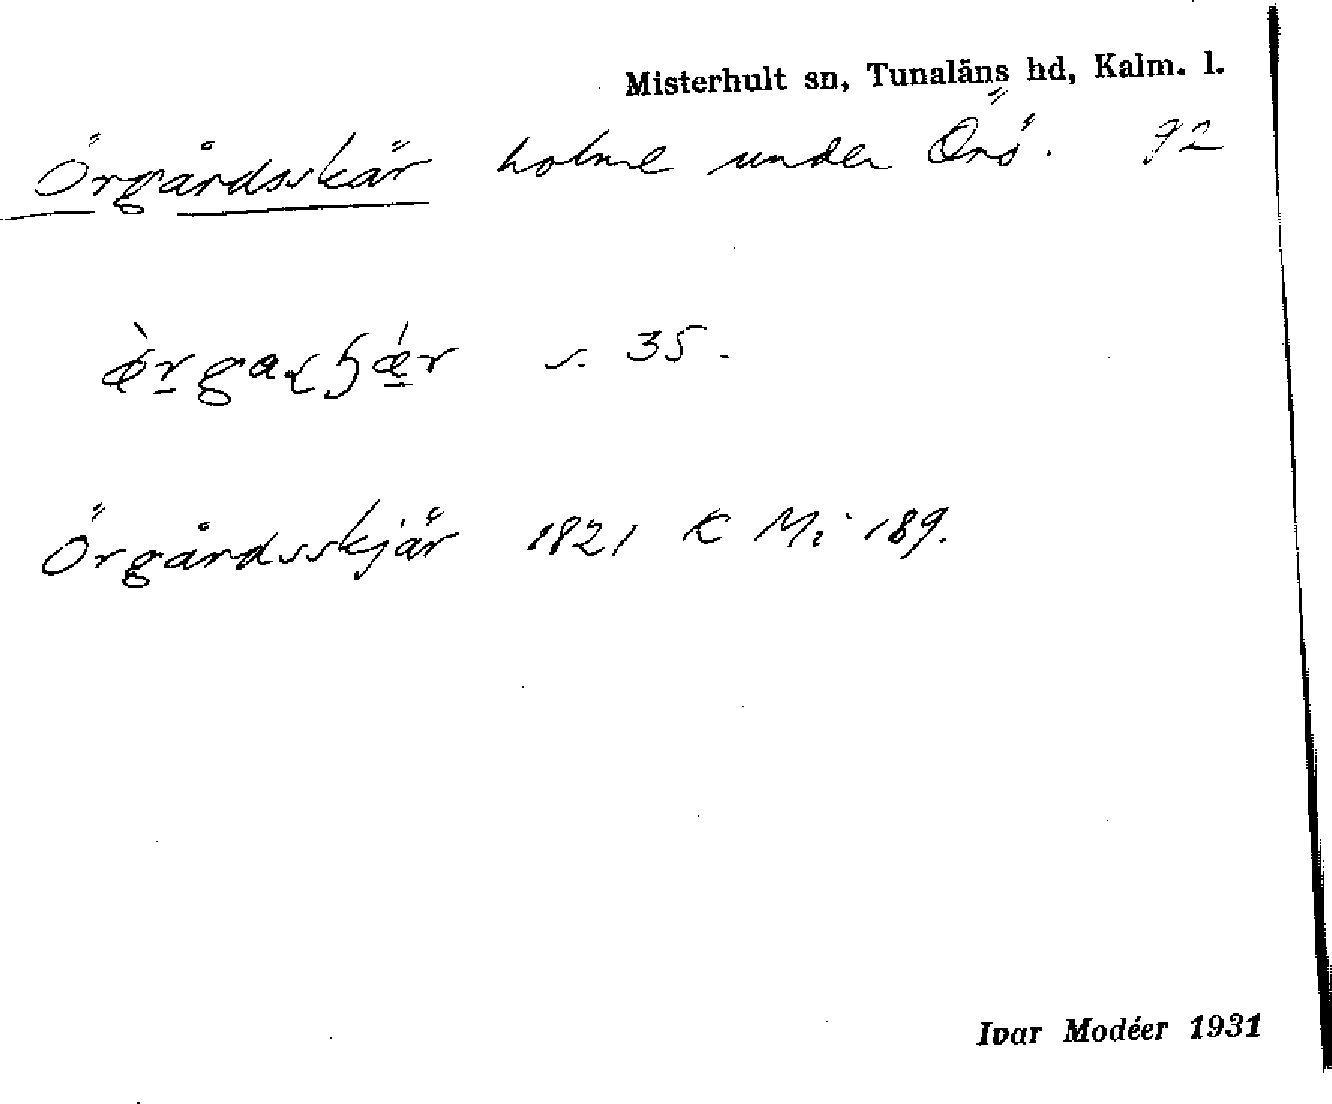 Misterhult sn, Tunaläns hd, Kalm. l.
Örgårdsskär holme under Örö. 72
s. 35.
Örgårdsskjär 1821 K Mi 189.
Ivar Modéer 1931